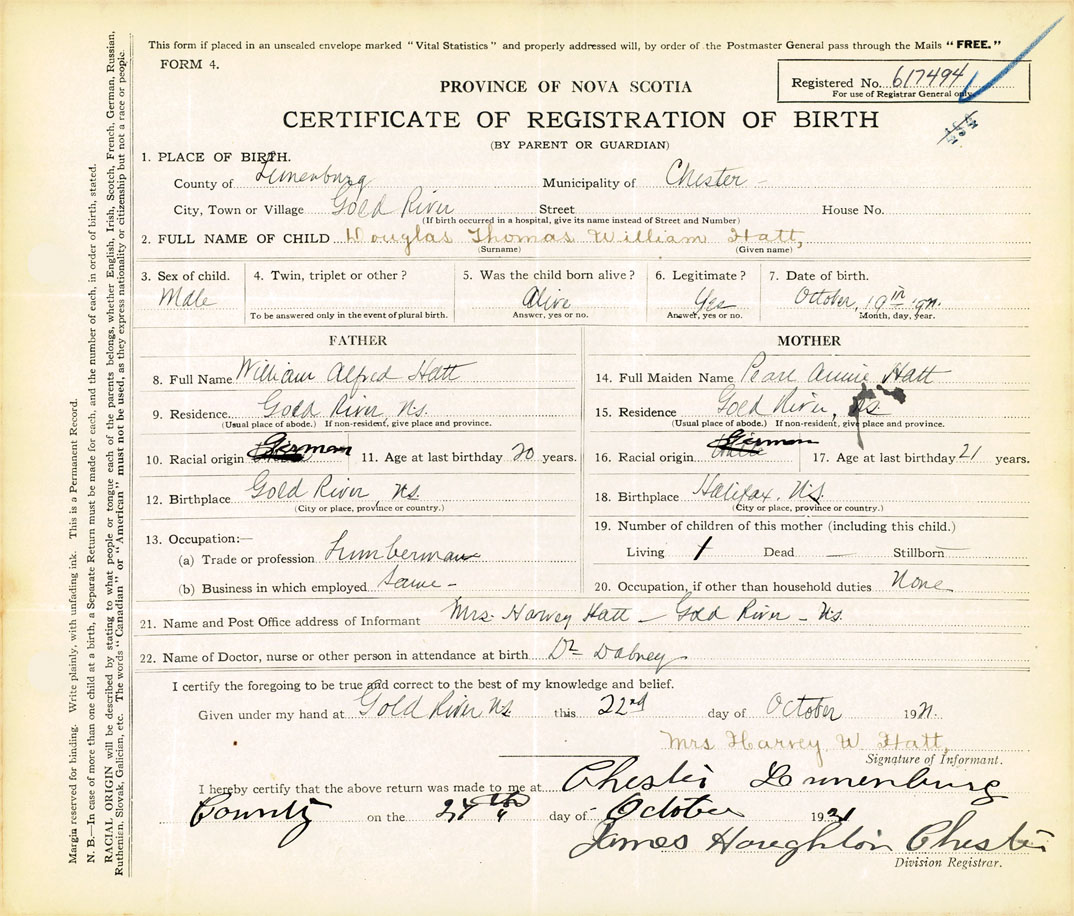 This form if placed in an unsealed envelope marked "Vital Statistics" and properly addressed will, by order of the Postmaster General pass through the Mails "FREE."
FORM 4.
Registered No. 617494
For use of Registrar General only.
PROVINCE OF NOVA SCOTIA
CERTIFICATE OF REGISTRATION OF BIRTH
(BY PARENT OR GUARDIAN)
1. PLACE OF BIRTH.
County of Lunenburg Municipality of Chester -
City, Town or Village Gold River Street House No.
(If birth occurred in a hospital, give its name instead of Street and Number)
2. FULL NAME OF CHILD Douglas Thomas William Hatt,
(Surname) (Given name)
3. Sex of child. 4. Twin, triplet or other? 5. Was the child born alive? 6. Legitimate? 7. Date of birth.
Male Alive Yes October, 19th
To be answered only in the event of plural birth. Answer, yes or no. Answer, yes or no. Month, day, year.
FATHER MOTHER
8. Full Name William Alfred Hatt 14. Full Maiden Name Pearl Annie Hatt
9. Residence Gold River, N.S. 15. Residence Gold River, N.S.
(Usual place of abode.) If non-resident, give place and province. (Usual place of abode.) If non-resident, give place and province.
10. Racial origin German 11. Age at last birthday 20 years. 16. Racial origin German 17. Age at last birthday 21 years.
12. Birthplace Gold River N.S. 18. Birthplace Halifax, N.S.
(City or place, province or country.) (City or place, province or country.)
13. Occupation:— 19. Number of children of this mother (including this child.)
(a) Trade or profession Lumberman Living 1 Dead — Stillborn
(b) Business in which employed Same - 20. Occupation, if other than household duties None
21. Name and Post Office address of Informant Mrs. Harvey Hatt - Gold River - N.S.
22. Name of Doctor, nurse or other person in attendance at birth Dr Dabney
I certify the foregoing to be true and correct to the best of my knowledge and belief.
Given under my hand at Gold River N.S. this 22nd day of October 1921.
Mrs Harvey W Hatt,
Signature of Informant.
I hereby certify that the above return was made to me at Chester Lunenburg
County on the 24th day of October 1921
James Houghton Chester
Division Registrar.
Margin reserved for binding. Write plainly, with unfading ink. This is a Permanent Record.
N. B.—In case of more than one child at a birth, a Separate Return must be made for each, and the number of each, in order of birth, stated.
RACIAL ORIGIN will be described by stating to what people or tongue each of the parents belongs, whether English, Irish, Scotch, French, German, Russian,
Ruthenian, Slovak, Galician, etc. The words "Canadian" or "American" must not be used, as they express nationality or citizenship but not a race or people.